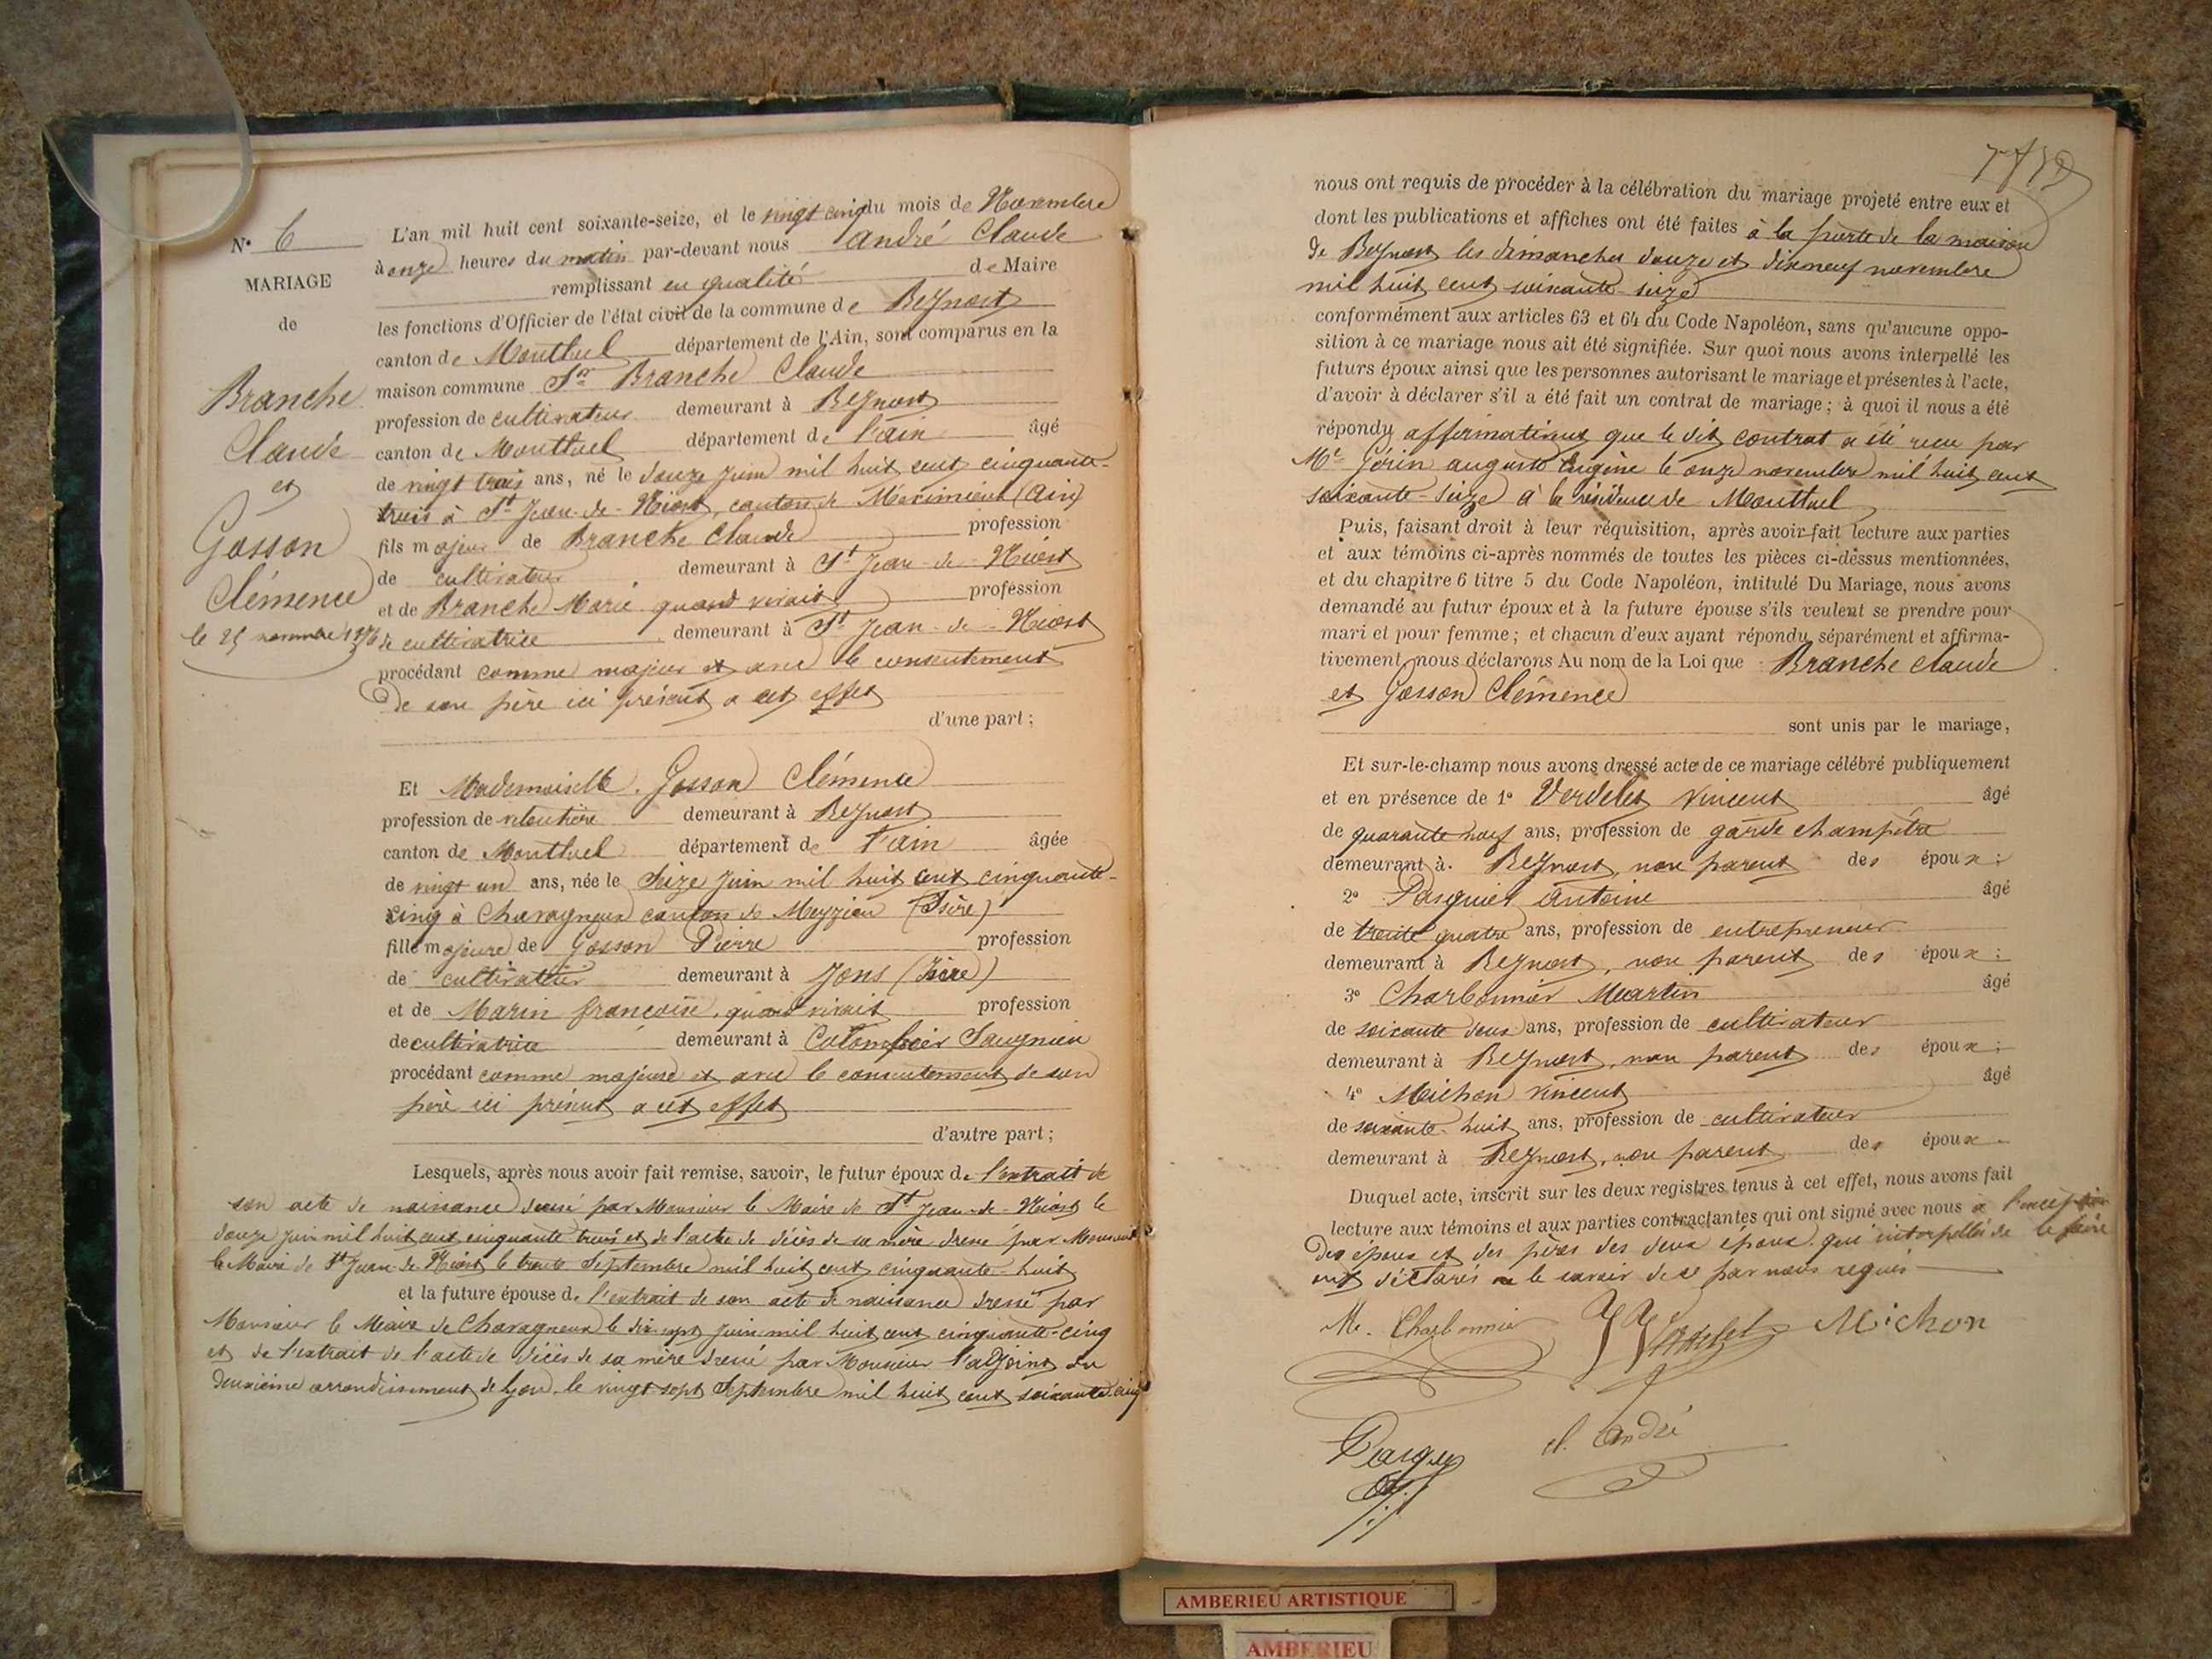 N° 6
MARIAGE
de
Branche
Claude
et
Gosson
Clémence
le 25 novembre 1876
L'an mil huit cent soixante-seize, et le vingt cinq du mois de Novembre
à onze heures du matin par-devant nous André Claude
remplissant en qualité de Maire
les fonctions d'Officier de l'état civil de la commune de Beynost
canton de Montluel département de l'Ain, sont comparus en la
maison commune Sr Branche Claude
profession de cultivateur demeurant à Beynost
canton de Montluel département de l'ain âgé
de vingt trois ans, né le douze juin mil huit cent cinquante-
trois à St Jean-de-Niost, canton de Meximieux (Ain)
fils majeur de Branche Claude profession
de cultivateur demeurant à St Jean-de-Niost
et de Branche Marie quand vivait profession
de cultivatrice demeurant à St Jean-de-Niost
procédant comme majeur et avec le consentement
de son père ici présent a cet effet
d'une part;
Et Mademoiselle Gosson Clémence
profession de demeurant à Beynost
canton de Montluel département de l'ain âgée
de vingt un ans, née le Seize juin mil huit cent cinquante-
cinq à Chavagneux canton de Meyzieu (Isère)
fille majeure de Gosson Pierre profession
de cultivateur demeurant à Jons (Isère)
et de Marin françoise, quand vivait profession
de cultivatrice demeurant à Colombier Saugnieu
procédant comme majeure et avec le consentement de son
père ici présent a cet effet
d'autre part;
Lesquels, après nous avoir fait remise, savoir, le futur époux de l'extrait de
son acte de naissance dressé par Monsieur le Maire de St Jean-de-Niost le
douze juin mil huit cent cinquante trois et de l'acte de décès de sa mère dressé par Monsieur
le Maire de St Jean-de-Niost le trente Septembre mil huit cent cinquante-huit
et la future épouse de l'extrait de son acte de naissance dressé par
Monsieur le Maire de Chavagneux le dix-sept juin mil huit cent cinquante-cinq
et de l'extrait de l'acte de décès de sa mère dressé par Monsieur l'adjoint du
deuxième arrondissement de Lyon, le vingt sept Septembre mil huit cent soixante cinq
nous ont requis de procéder à la célébration du mariage projeté entre eux et
dont les publications et affiches ont été faites à la porte de la maison
de Beynost les dimanches douze et dix neuf novembre
mil huit cent soixante-seize
conformément aux articles 63 et 64 du Code Napoléon, sans qu'aucune oppo-
sition à ce mariage nous ait été signifiée. Sur quoi nous avons interpellé les
futurs époux ainsi que les personnes autorisant le mariage et présentes à l'acte,
d'avoir à déclarer s'il a été fait un contrat de mariage; à quoi il nous a été
répondu affirmativement que le dit contrat a été reçu par
Me Gérin auguste Eugène le onze novembre mil huit cent
soixante-seize à la résidence de Montluel
Puis, faisant droit à leur réquisition, après avoir fait lecture aux parties
et aux témoins ci-après nommés de toutes les pièces ci-dessus mentionnées,
et du chapitre 6 titre 5 du Code Napoléon, intitulé Du Mariage, nous avons
demandé au futur époux et à la future épouse s'ils veulent se prendre pour
mari et pour femme; et chacun d'eux ayant répondu séparément et affirma-
tivement nous déclarons Au nom de la Loi que Branche Claude
et Gosson Clémence
sont unis par le mariage,
Et sur-le-champ nous avons dressé acte de ce mariage célébré publiquement
et en présence de 1° Verdelet Vincent âgé
de quarante neuf ans, profession de garde champêtre
demeurant à Beynost, non parent des époux;
2° Pasquiet Antoine âgé
de trente quatre ans, profession de entrepreneur
demeurant à Beynost, non parent des époux;
3° Charbonnier Martin âgé
de soixante deux ans, profession de cultivateur
demeurant à Beynost, non parent des époux;
4° Michon Vincent âgé
de soixante-huit ans, profession de cultivateur
demeurant à Beynost, non parent des époux.
Duquel acte, inscrit sur les deux registres tenus à cet effet, nous avons fait
lecture aux témoins et aux parties contractantes qui ont signé avec nous a l'exception
des époux et des pères des deux époux qui interpellés de le faire
ont déclarés ne le savoir de ce par nous requis
M. Charbonnier Verdelet Michon
Pasquet cl. André
AMBERIEU ARTISTIQUE
AMBERIEU